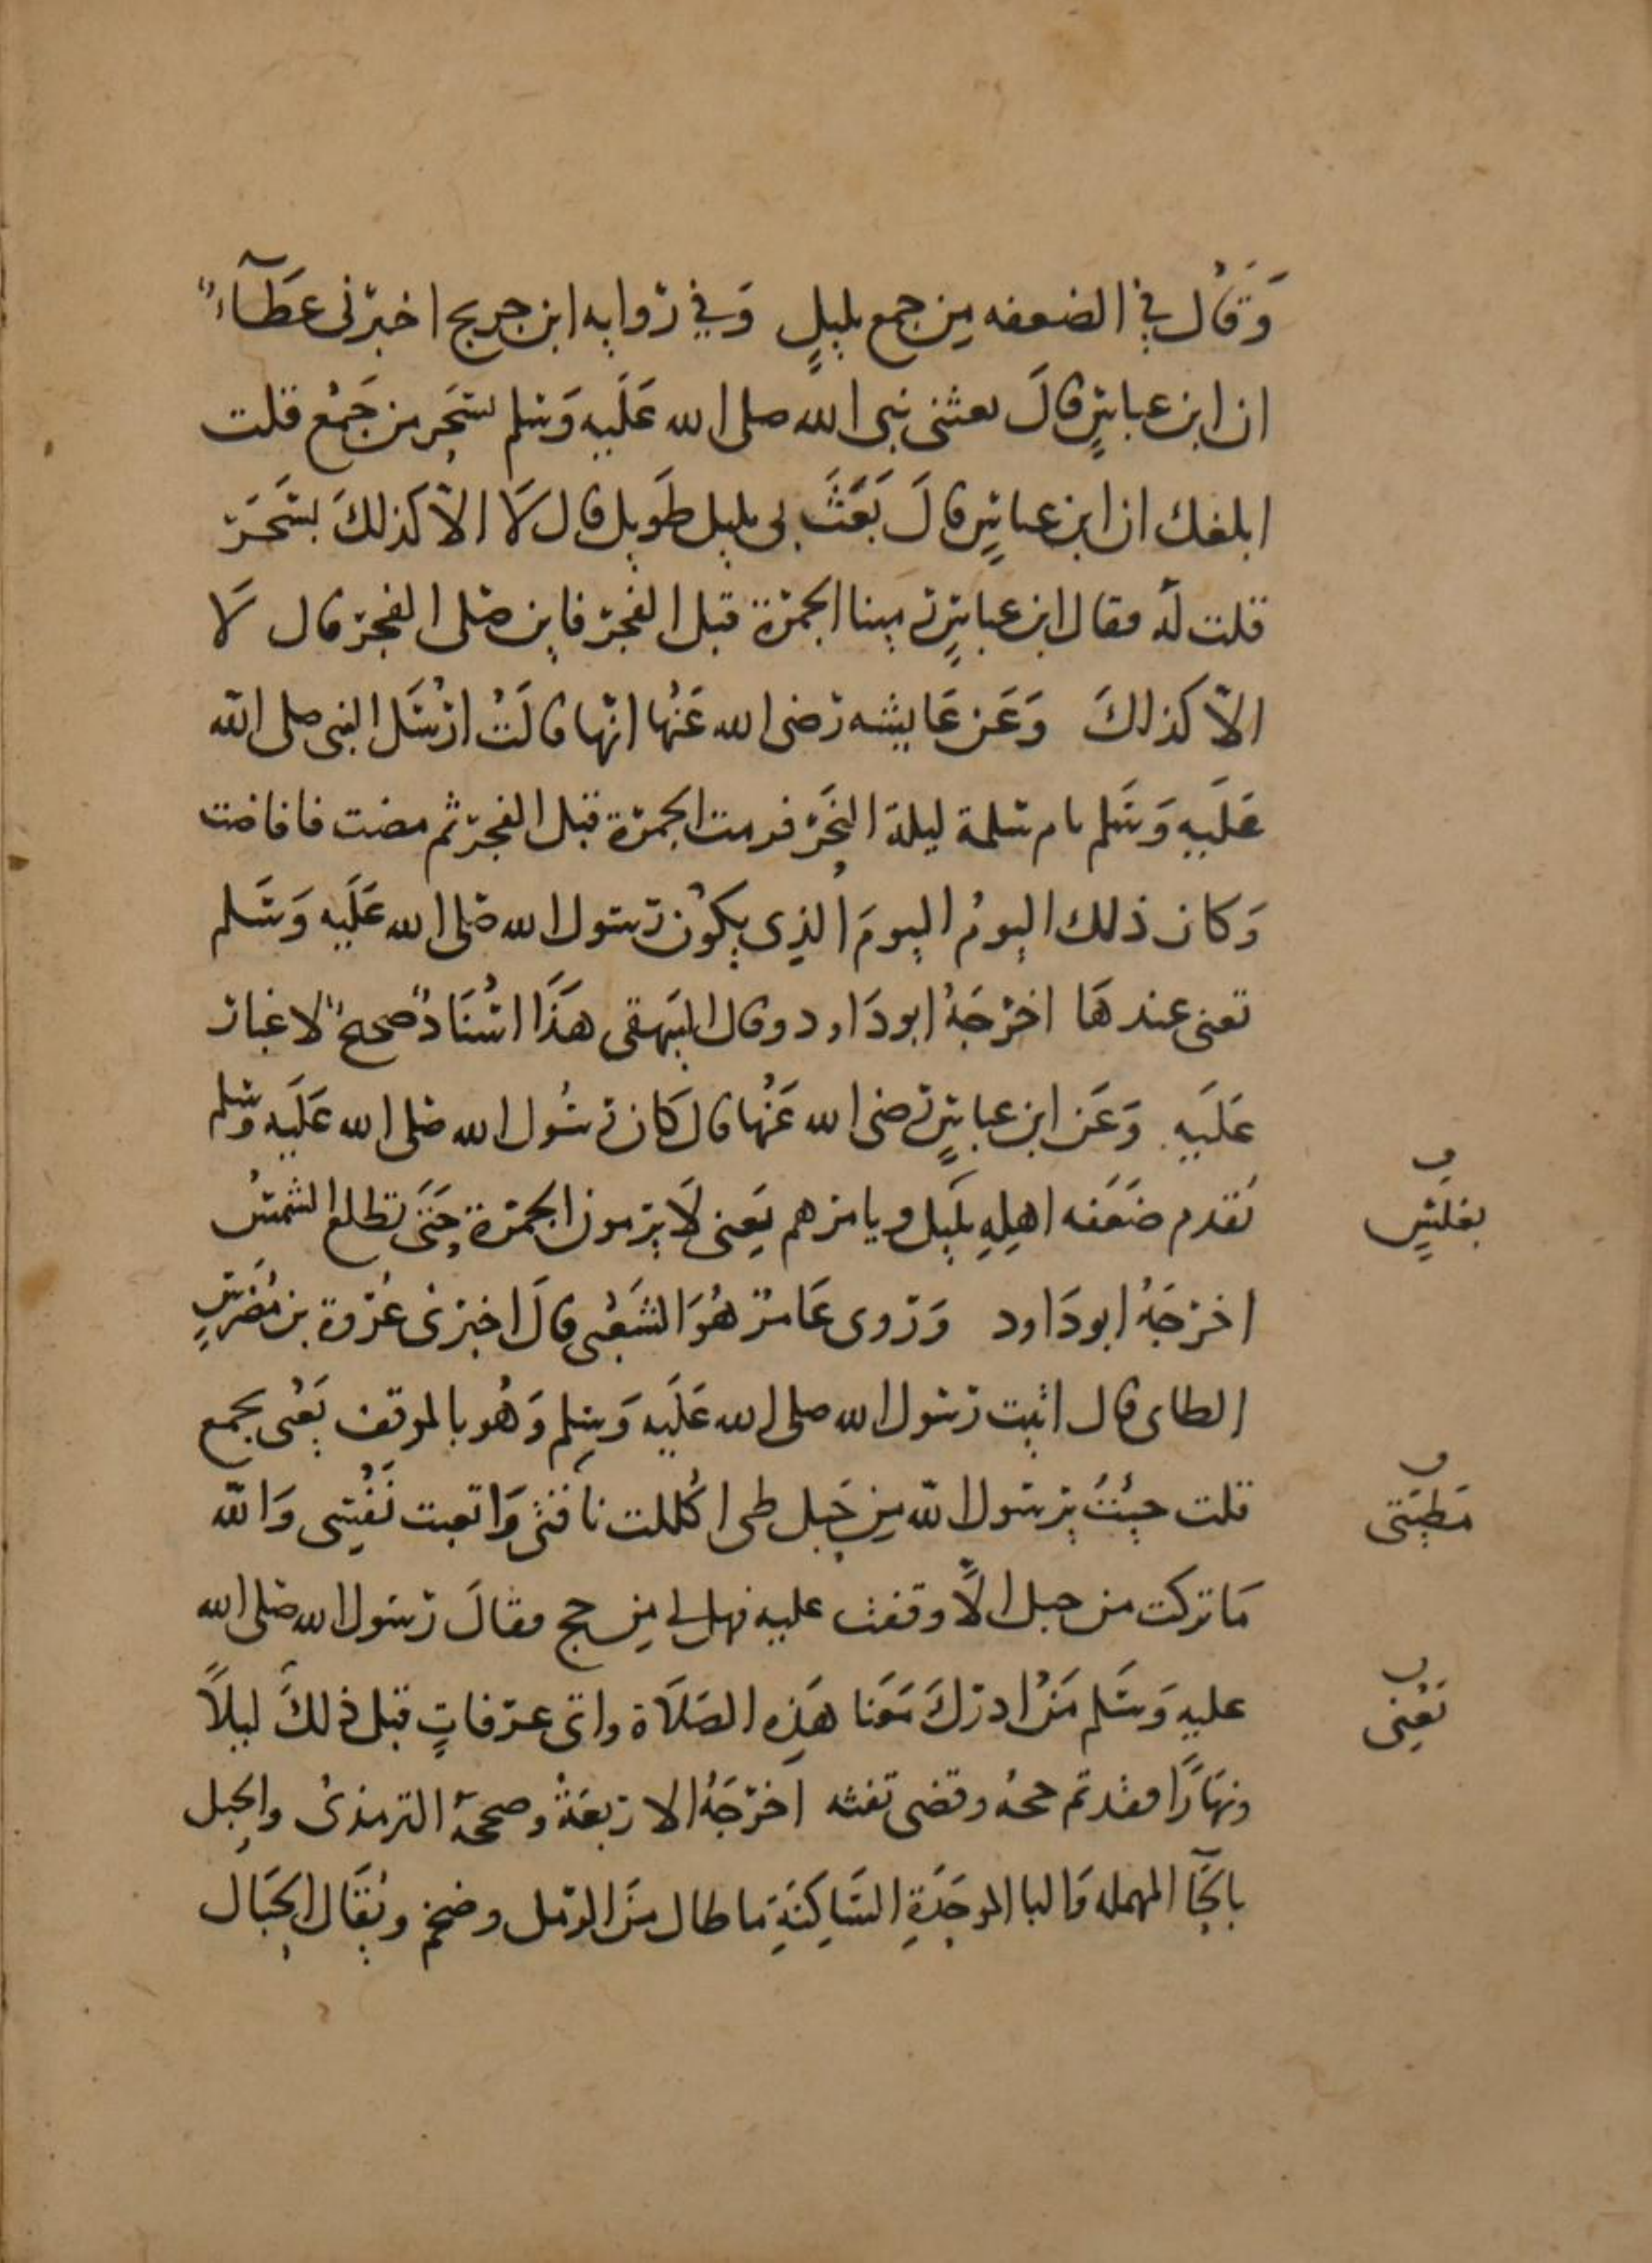 وَقَال في الضعفه مِن جمع بليلٍ وَفي روايه ابن جريج اخبرنى عطآءٌ
ان ابن عباسٍ قالَ بعثنى نبى الله صلى الله عَلَيهِ وَسلم بسَحَر من جَمْع قلت
ابلغك ان ابن عباسٍ قالَ بَعَثَ بى بليل طَويل قال لَا الاّ كذلكَ بسَحَر
قلت لَه فقال ابن عباسٍ رمينا الجمرة قبل الفجر فاين صلى الفجر قال لَا
الاّ كذلكَ وَعَن عَايشه رضى الله عَنْها انّها قالَتْ ارْسَل النبى صلى الله
عَلَيهِ وَسَلم بام سلمة ليلة النحَر فرمت الجمرة قبل الفجر ثم مضت فافاضت
وَكان ذلك اليومُ اليومَ الذِى يكُون رسول الله صَلى الله عَلَيه وَسَلم
تعنى عندهَا اخرَجَهُ ابو دَاود وقال البَيهقى هَذَا اسْنَادٌ صحيحٌ لا غبار
عَلَيهِ وَعَن ابن عباسٍ رضى الله عَنْها قال كَان رسُول الله صَلى الله عَلَيه وسلم
يُقدم ضَعَفه اهلِهِ بلَيل ويامرهم يَعنِى لَا يرمون الجمرة حَتَى تطلع الشمسُ
بغلسٍ
اخرجَهُ ابو دَاود وَروى عَامرٌ هُوَ الشَعْبى قالَ اخبرنى عُروة بن مُضرسٍ
الطاى قال اتيت رسول الله صلى الله عَلَيه وَسلم وَهُو بالموقف يَعْنى بجمع
قلت جِئْتُ يرسول الله مِن جَبل طى اكْللت ناقتى وَاتعبت نَفْسِى وَالله
مَطِيَتى
مَا تركت من حبل الاَّ وقفت عليه فهل لى مِن حج فقالَ رسَول الله صَلى الله
عليهِ وَسَلم مَنْ ادركَ مَعَنا هَذِه الصَلَاة واتى عرفاتٍ قبل ذلكَ ليلاً
يَعْنِى
ونهَارًا فقد تم حجهُ وقضى تفثه اخرَجَهُ الاربَعَةُ وصححهُ الترمذىُ والحبل
بالحَآ المهمله وَالبا الموحَدَةِ السَاكِنَةِ ما طال مِنَ الرمل وضخم ويُقَال الحِبَال